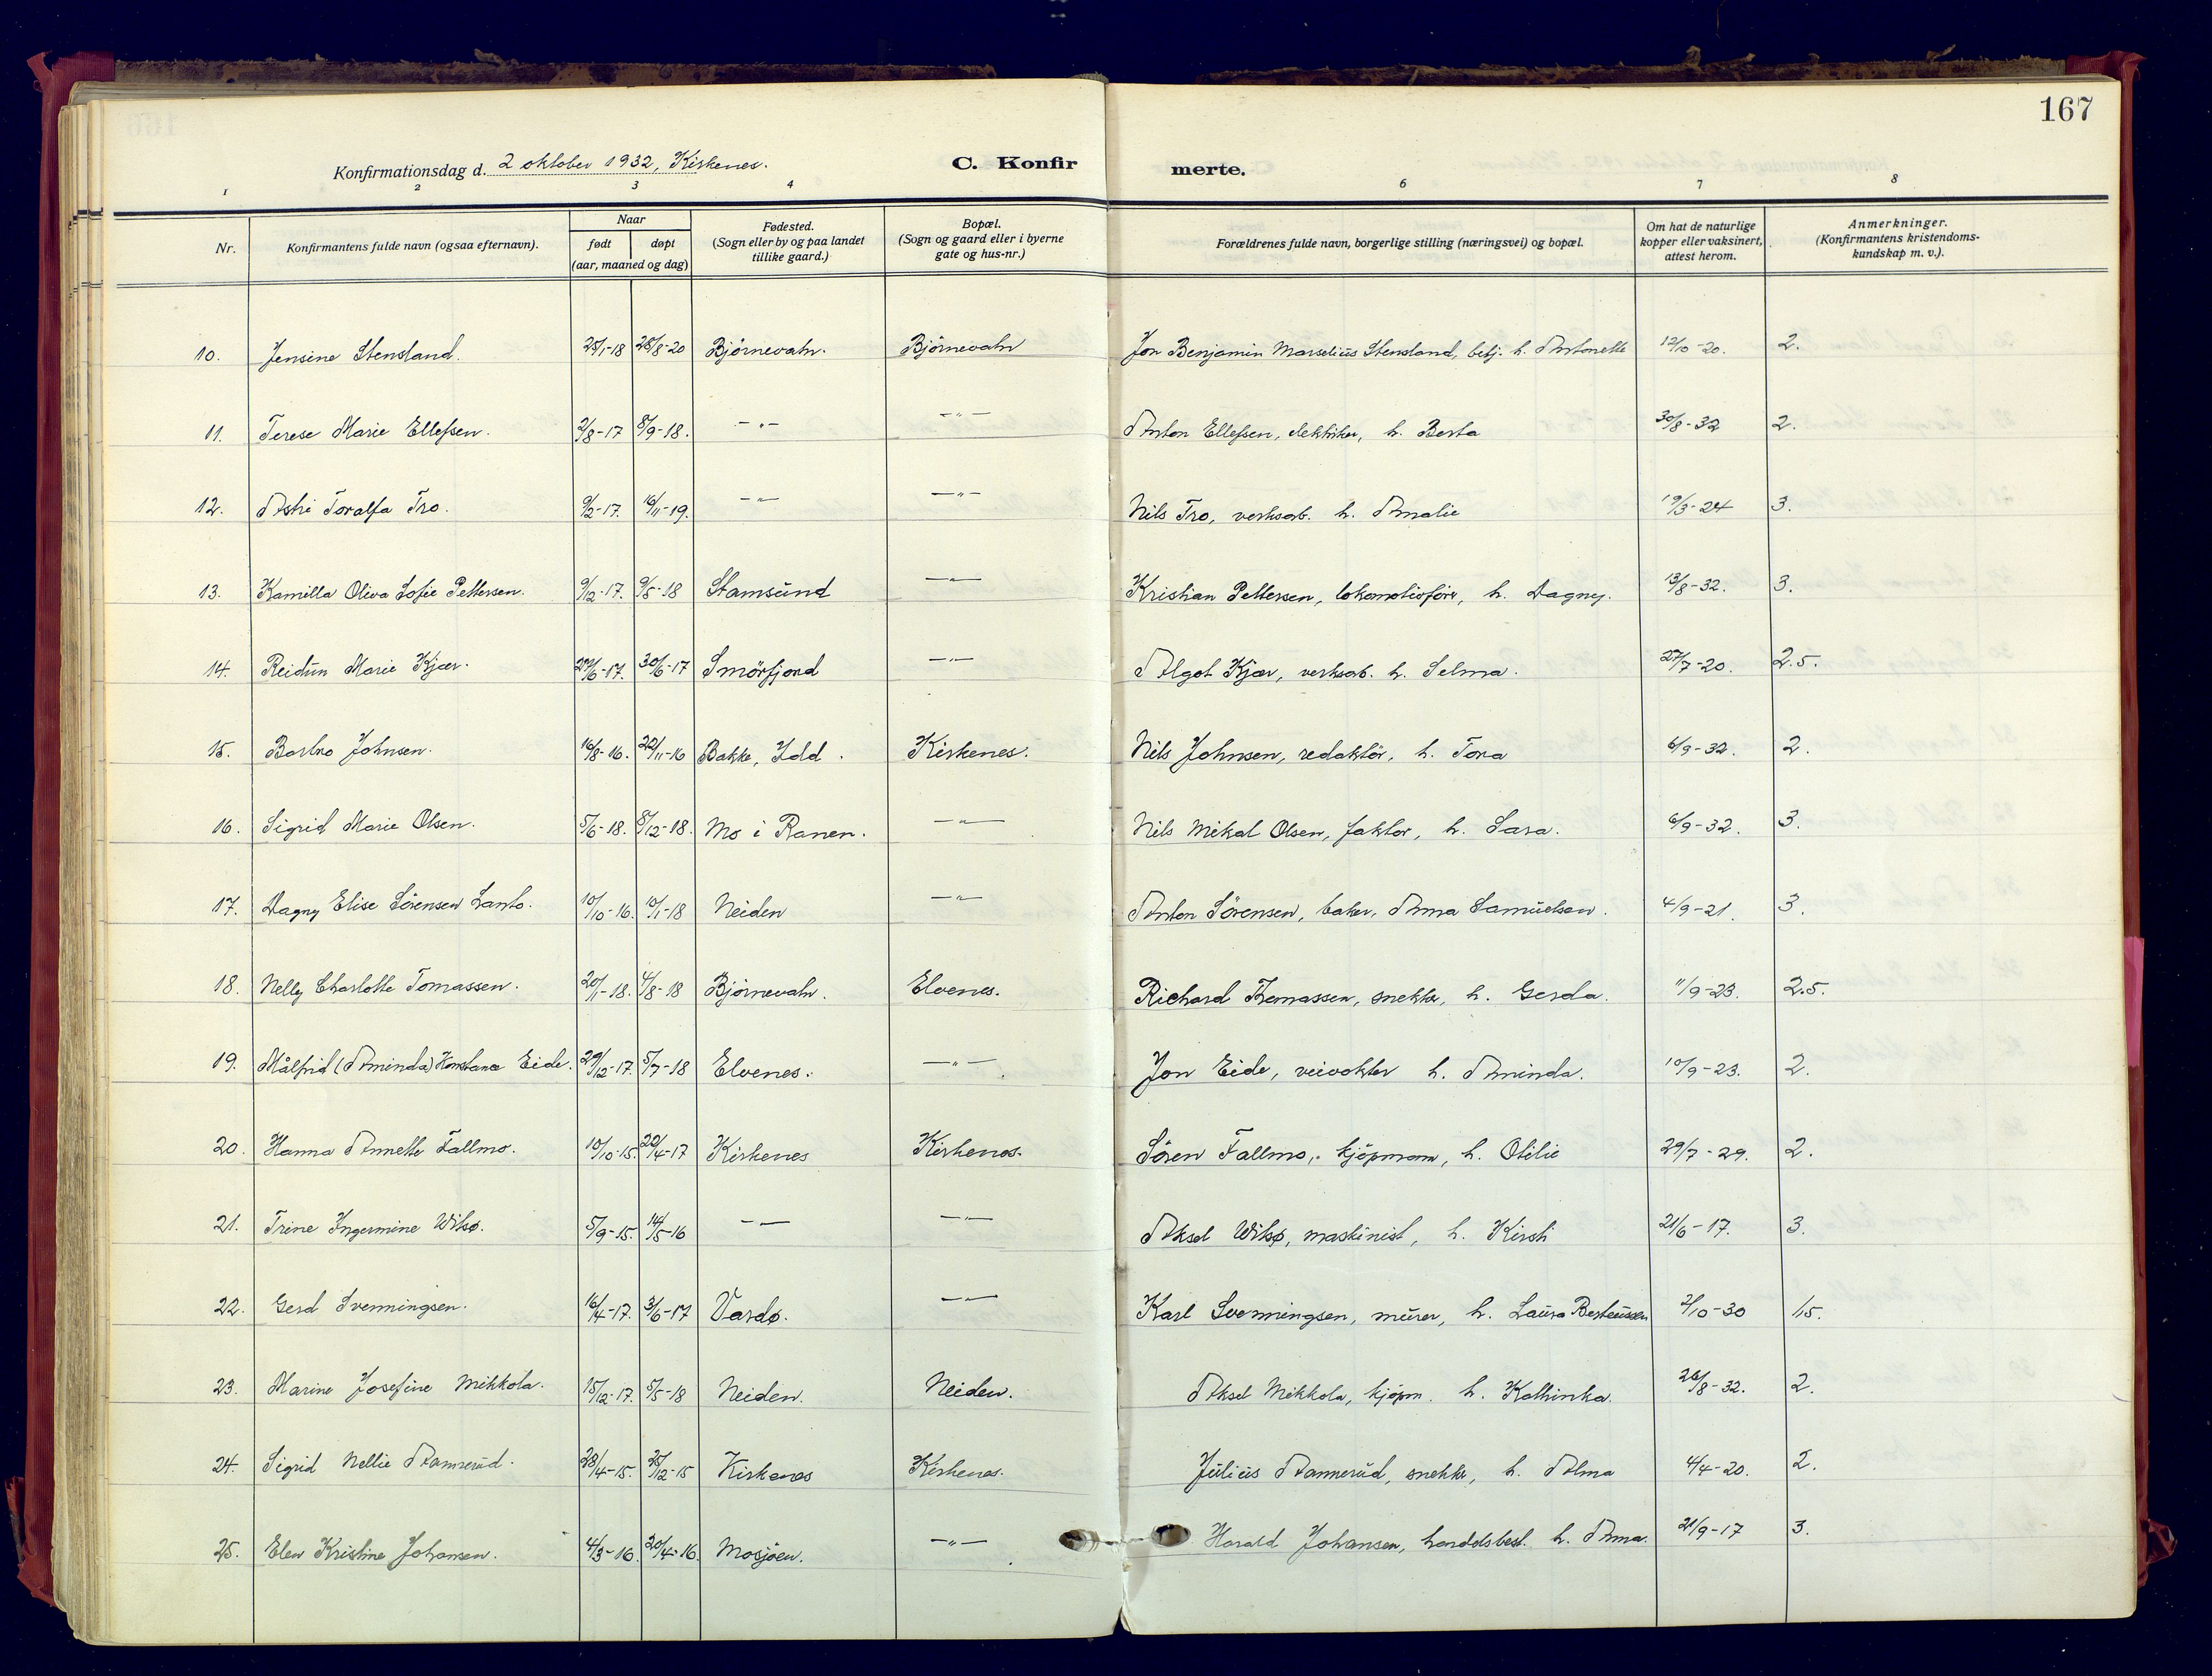 167
Konfirmationsdag d. 2 oktober 1932, Kirkenes.
C. Konfirmerte.
1 2 3 4 6 7 8
Nr. | Konfirmantens fulde navn (ogsaa efternavn). | Naar født | døpt (aar, maaned og dag) | Fødested. (Sogn eller by og paa landet tillike gaard.) | Bopæl. (Sogn og gaard eller i byerne gate og hus-nr.) | Forældrenes fulde navn, borgerlige stilling (næringsvei) og bopæl. | Om hat de naturlige kopper eller vaksinert, attest herom. | Anmerkninger. (Konfirmantens kristendomskundskap m. v.).
10. Jensine Stensland. 25/1-18 28/8-20 Björnevatn. Björnevatn Jon Benjamin Marselius Stensland, betj. h. Antonette 12/10-20. 2.
11. Terese Marie Ellefsen. 2/8-17 8/9-18. -"- -"- Anton Ellefsen, elektriker, h. Berta 30/8-32 2.
12. Astri Toralfa Tro. 9/2-17. 16/11-19. -"- -"- Nils Tro, verksarb. h. Amalie 19/3-24 3.
13. Kamilla Oliva Sofie Pettersen. 9/12-17. 9/5-18 Stamsund -"- Kristian Pettersen, lokomotivförer, h. Dagny. 13/8-32. 3.
14. Reidun Marie Kjær. 6-17. 30/6-17 Smörfjord -"- Algot Kjær, verksarb. h. Selma. 27/7-20. 2.5.
15. Barbro Johnsen. 16/8-16. 22/11-16 Bakke, Idd. Kirkenes. Nils Johnsen, redaktör, h. Tora 6/9-32. 2.
16. Sigrid Marie Olsen. 5/6-18. 8/12-18. Mo i Ranen. -"- Nils Mikal Olsen, faktor, h. Sara. 6/9-32. 3.
17. Dagny Elise Sörensen Lanto. 10/10-16. 10/1-18 Neiden -"- Anton Sörensen, baker, Anna Samuelsen. 4/9-21. 3.
18. Nelly Charlotte Tomassen. 20/1-18. 4/8-18 Björnevatn. Elvenes. Richard Thomassen, snekker, h. Gerda. 11/9-23. 2.5.
19. Målfrid (Aminda) Konstanse Eide. 29/12-17. 5/7-18 Elvenes. -"- Jon Eide, veivokter h. Aminda. 10/9-23. 2.
20. Hanna Annette Fallmo. 10/10-15. 20/4-17 Kirkenes Kirkenes. Sören Fallmo, kjöpmann, h. Otilie 29/7-29. 2.
21. Trine Ingermine Wilsø. 5/9-15. 14/5-16 -"- -"- Aksel Wilsø, maskinist, h. Kirsti 21/6-17. 3.
22. Gerd Svenningsen. 16/4-17. 3/6-17 Vardø. -"- Karl Svenningsen, murer, h. Laura Berteussen 2/10-30 1,5.
23. Marine Josefine Mikkola. 15/12-17. 5/5-18 Neiden. Neiden. Aksel Mikkola, kjöpm. h. Kathinka. 26/8-32. 2.
24. Sigrid Nellie Aamerud. 28/4-15. 25/12-15 Kirkenes Kirkenes. Julius Aamerud, snekker, h. Alma 4/4-20. 2.
25. Elen Kristine Johansen. 4/3-16. 30/4-16. Mosjöen. -"- Harald Johansen, handelsbest. h. Anna. 21/9-17 3.